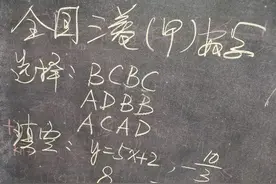 全国三卷(甲)数学
选择: BCBC
ADBB
ACAD
填空: y=5x+2, -10/3
8